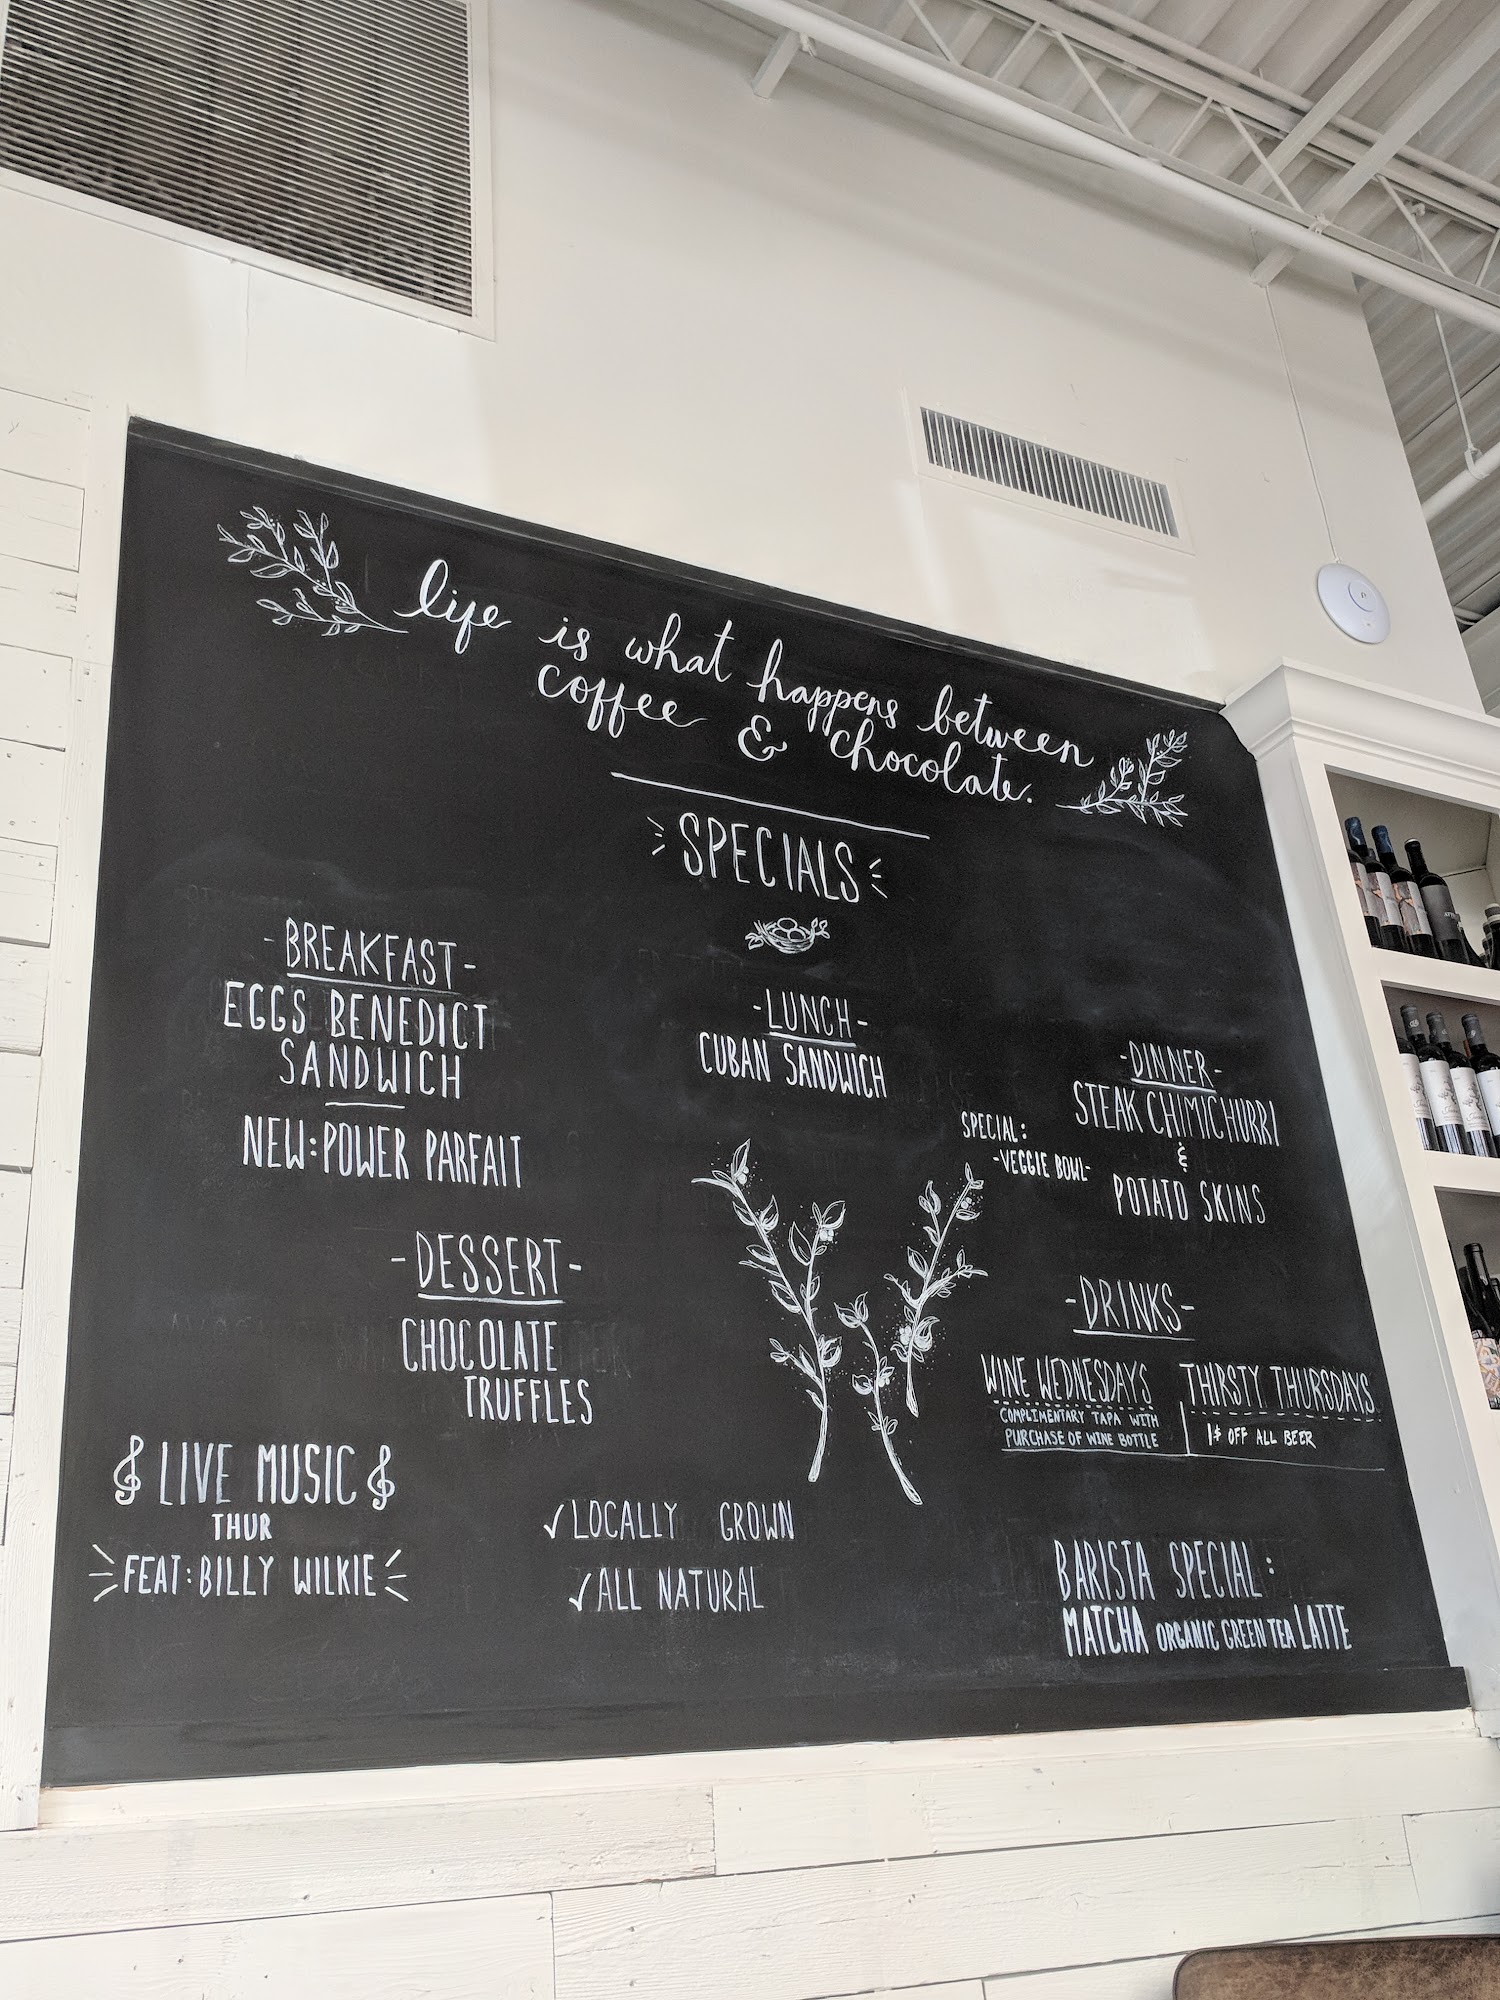 life is what happens between
coffee & chocolate.
SPECIALS
-BREAKFAST-
EGGS BENEDICT
SANDWICH
NEW: POWER PARFAIT
-LUNCH-
CUBAN SANDWICH
-DINNER-
STEAK CHIMICHURRI
&
POTATO SKINS
SPECIAL:
-VEGGIE BOWL-
-DESSERT-
CHOCOLATE
TRUFFLES
-DRINKS-
WINE WEDNESDAYS
COMPLIMENTARY TAPA WITH
PURCHASE OF WINE BOTTLE
THIRSTY THURSDAYS
1$ OFF ALL BEER
LIVE MUSIC
THUR
FEAT: BILLY WILKIE
✓LOCALLY GROWN
✓ALL NATURAL
BARISTA SPECIAL:
MATCHA ORGANIC GREEN TEA LATTE